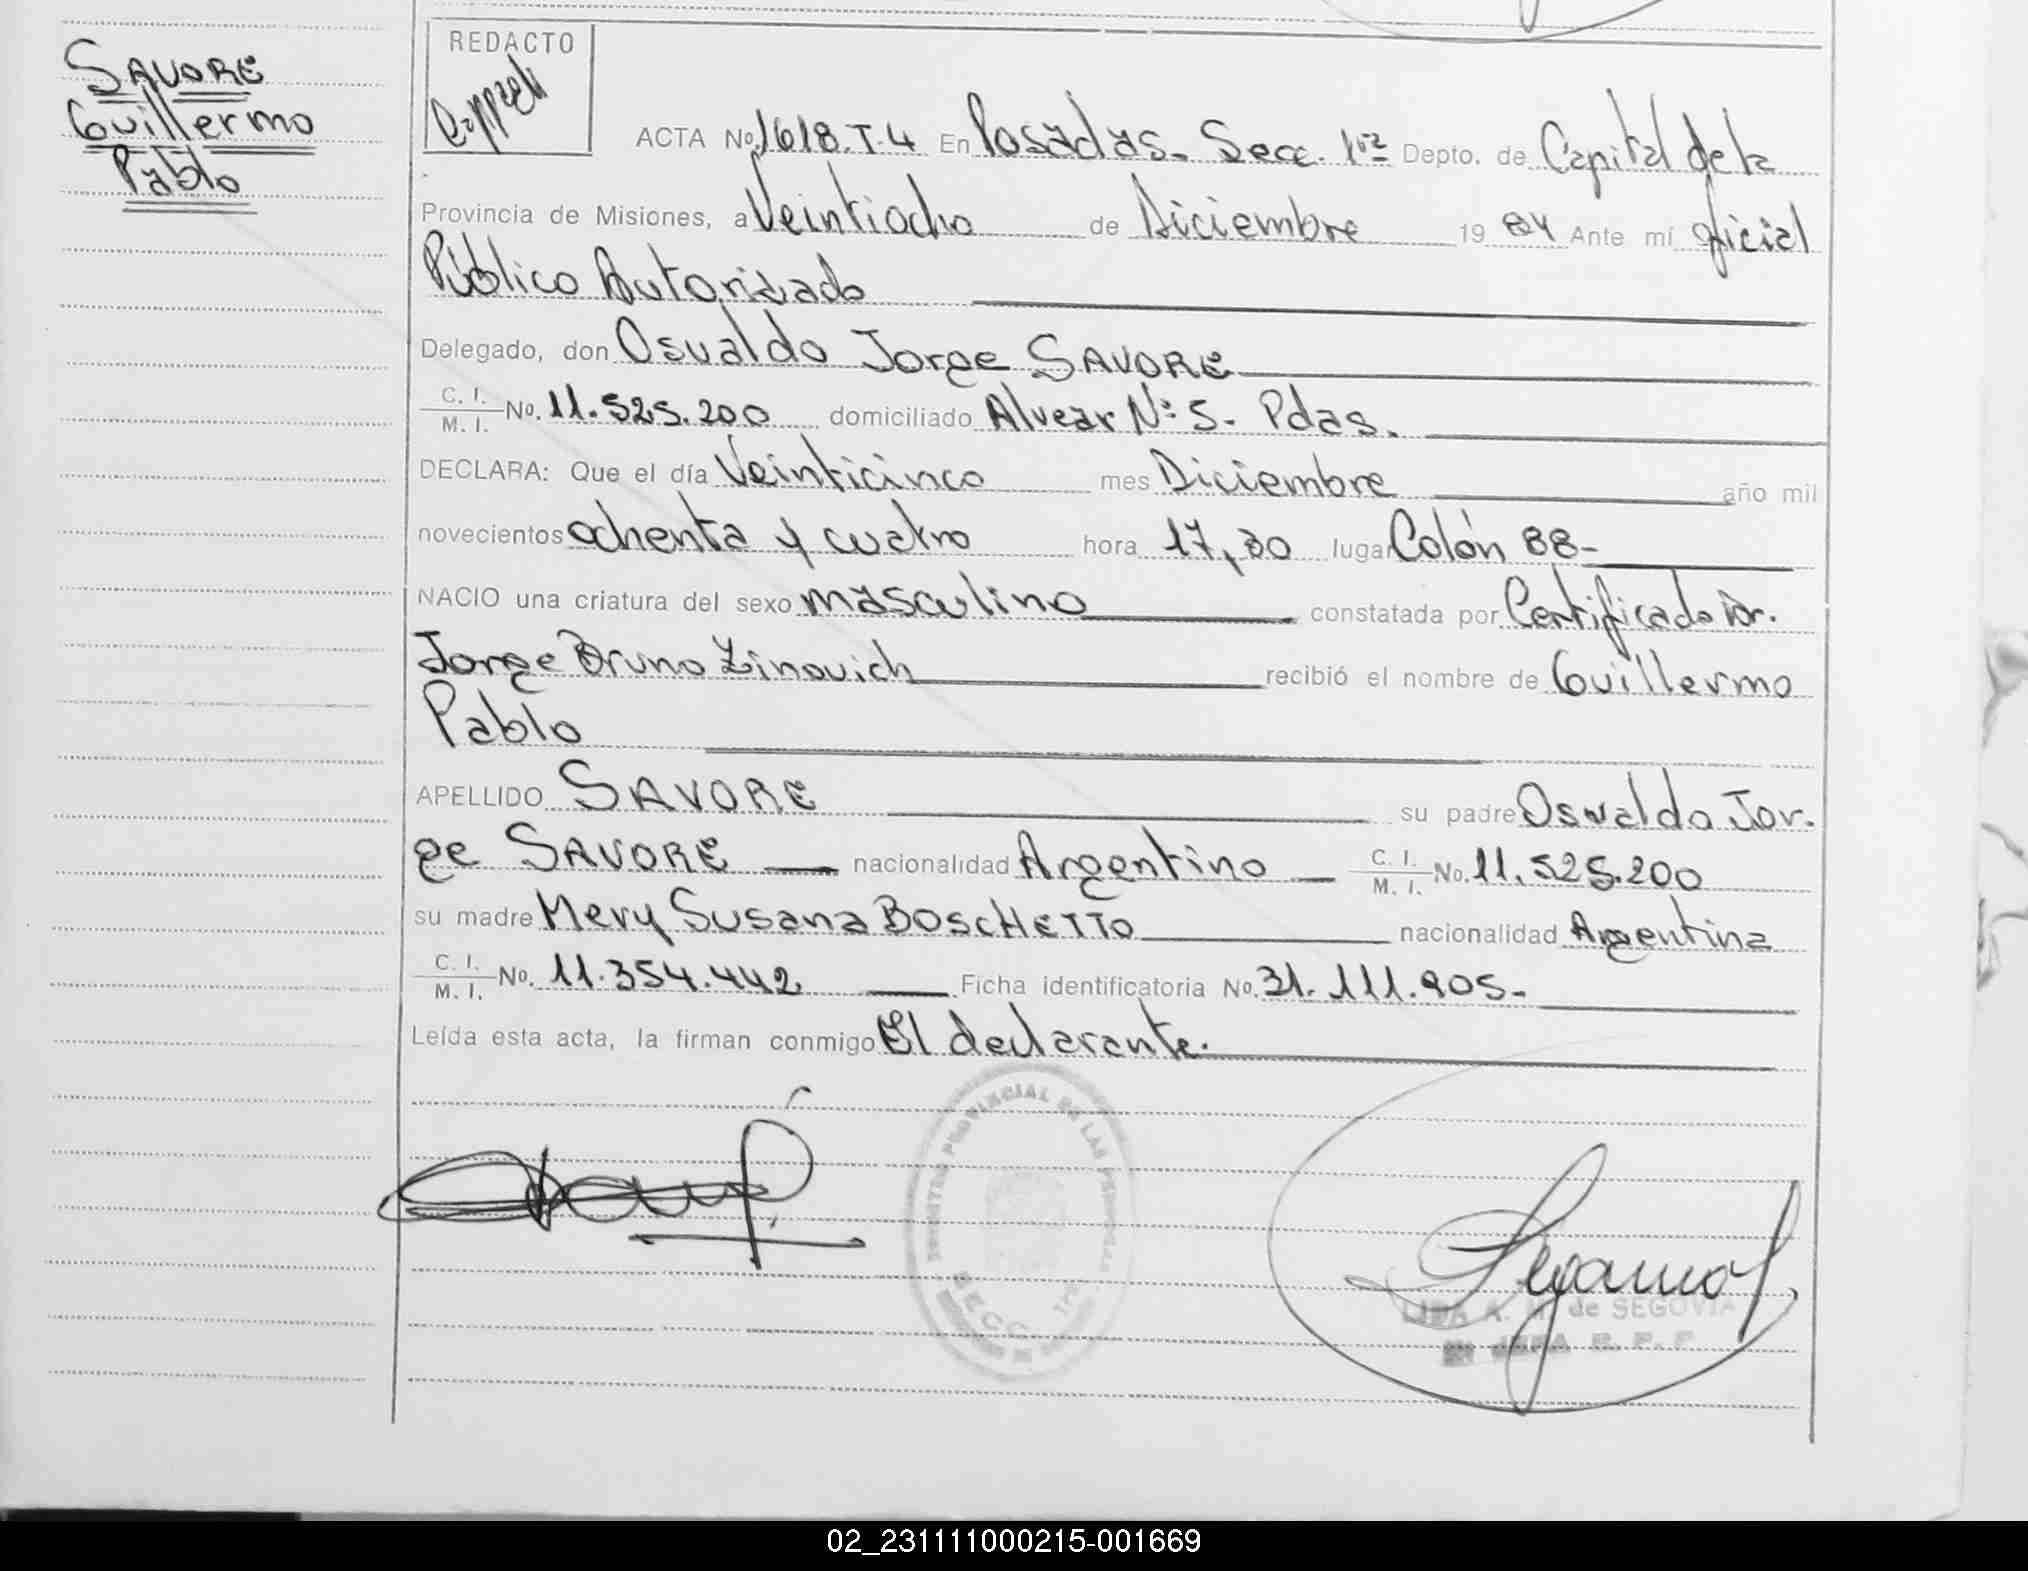 SAVORE
Guillermo
Pablo
REDACTO
ACTA No. 1618.T.4 En Posadas. Secc. 1ra Depto. de Capital de la
Provincia de Misiones, a Veintiocho de Diciembre 19 84 Ante mí oficial
Público Autorizado
Delegado, don Osvaldo Jorge SAVORE
C. I.
M. I. No. 11.525.200 domiciliado Alvear Nº 5- Pdas.
DECLARA: Que el día Veinticinco mes Diciembre año mil
novecientos ochenta y cuatro hora 17,30 lugar Colón 88-
NACIO una criatura del sexo masculino constatada por Certificado Dr.
Jorge Bruno Zinovich recibió el nombre de Guillermo
Pablo
APELLIDO SAVORE su padre Osvaldo Jor-
ge SAVORE nacionalidad Argentino C. I.
M. I. No. 11.525.200
su madre Mery Susana BOSCHETTO nacionalidad Argentina
C. I.
M. I. No. 11.354.442 Ficha identificatoria No. 31.111.905-
Leída esta acta, la firman conmigo El declarante.
PROVINCIAL DE LAS PERSONAS
SECC. 1ra
LIDA A. M. de SEGOVIA
JEFA R. P. P.
02_231111000215-001669